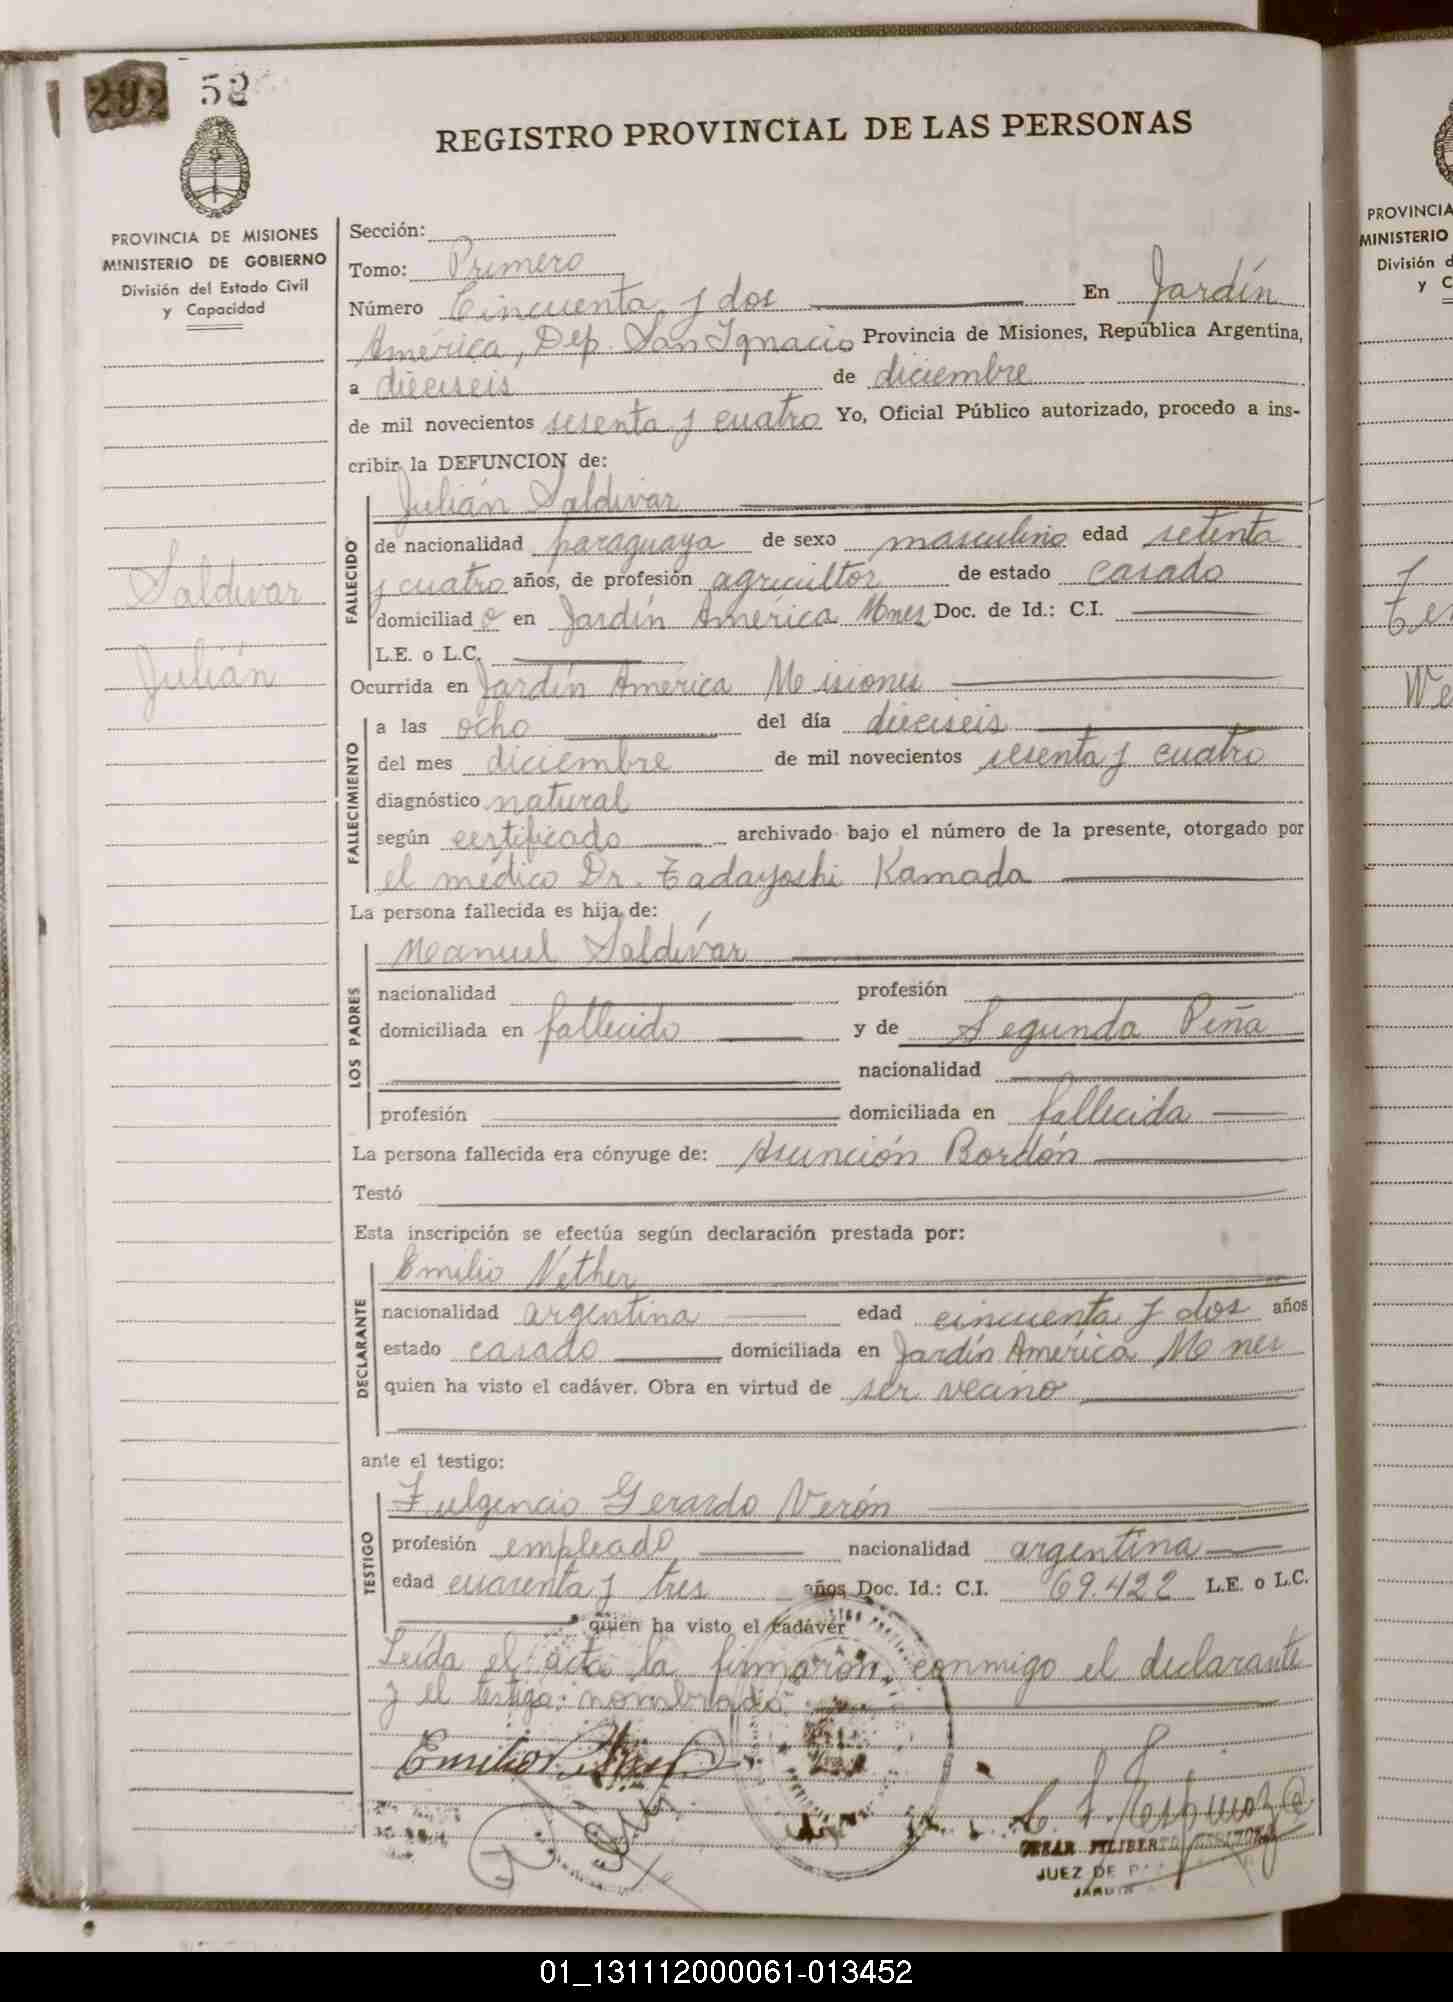 292 52
REGISTRO PROVINCIAL DE LAS PERSONAS
PROVINCIA DE MISIONES
MINISTERIO DE GOBIERNO
División del Estado Civil
y Capacidad
Saldivar
Julián
Sección:
Tomo: Primero
Número Cincuenta y dos En Jardín
América, Dep. San Ignacio Provincia de Misiones, República Argentina,
a dieciseis de diciembre
de mil novecientos sesenta y cuatro Yo, Oficial Público autorizado, procedo a ins-
cribir la DEFUNCION de:
FALLECIDO
Julián Saldivar
de nacionalidad paraguaya de sexo masculino edad setenta
y cuatro años, de profesión agricultor de estado casado
domiciliado en Jardín América Mnes Doc. de Id.: C.I.
L.E. o L.C.
Ocurrida en Jardín América Misiones
FALLECIMIENTO
a las ocho del día dieciseis
del mes diciembre de mil novecientos sesenta y cuatro
diagnóstico natural
según certificado archivado bajo el número de la presente, otorgado por
el médico Dr. Tadayoshi Kamada
La persona fallecida es hija de:
LOS PADRES
Manuel Saldívar
nacionalidad profesión
domiciliada en fallecido y de Segunda Piña
nacionalidad
profesión domiciliada en fallecida
La persona fallecida era cónyuge de: Asunción Bordón
Testó
Esta inscripción se efectúa según declaración prestada por:
DECLARANTE
Emilio Nether
nacionalidad argentina edad cincuenta y dos años
estado casado domiciliada en Jardín América Mnes
quien ha visto el cadáver. Obra en virtud de ser vecino
ante el testigo:
TESTIGO
Fulgencio Gerardo Verón
profesión empleado nacionalidad argentina
edad cuarenta y tres años Doc. Id.: C.I. 69.422 L.E. o L.C.
quien ha visto el cadáver
Leída el acta la firmaron conmigo el declarante
y el testigo nombrado
Emilio
CESAR FILIBERTO
JUEZ DE
JARDIN
PROVINCIA
MINISTERIO
División d
y C
We
01_131112000061-013452